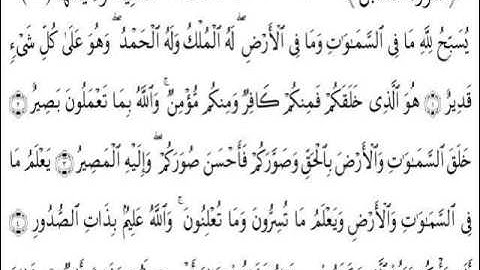 يُسَبِّحُ لِلَّهِ مَا فِى ٱلسَّمَٰوَٰتِ وَمَا فِى ٱلْأَرْضِ ۖ لَهُ ٱلْمُلْكُ وَلَهُ ٱلْحَمْدُ ۖ وَهُوَ عَلَىٰ كُلِّ شَىْءٍ
قَدِيرٌ ۝١ هُوَ ٱلَّذِى خَلَقَكُمْ فَمِنكُمْ كَافِرٌ وَمِنكُم مُّؤْمِنٌ ۚ وَٱللَّهُ بِمَا تَعْمَلُونَ بَصِيرٌ ۝٢
خَلَقَ ٱلسَّمَٰوَٰتِ وَٱلْأَرْضَ بِٱلْحَقِّ وَصَوَّرَكُمْ فَأَحْسَنَ صُوَرَكُمْ ۖ وَإِلَيْهِ ٱلْمَصِيرُ ۝٣ يَعْلَمُ مَا
فِى ٱلسَّمَٰوَٰتِ وَٱلْأَرْضِ وَيَعْلَمُ مَا تُسِرُّونَ وَمَا تُعْلِنُونَ ۚ وَٱللَّهُ عَلِيمٌۢ بِذَاتِ ٱلصُّدُورِ ۝٤